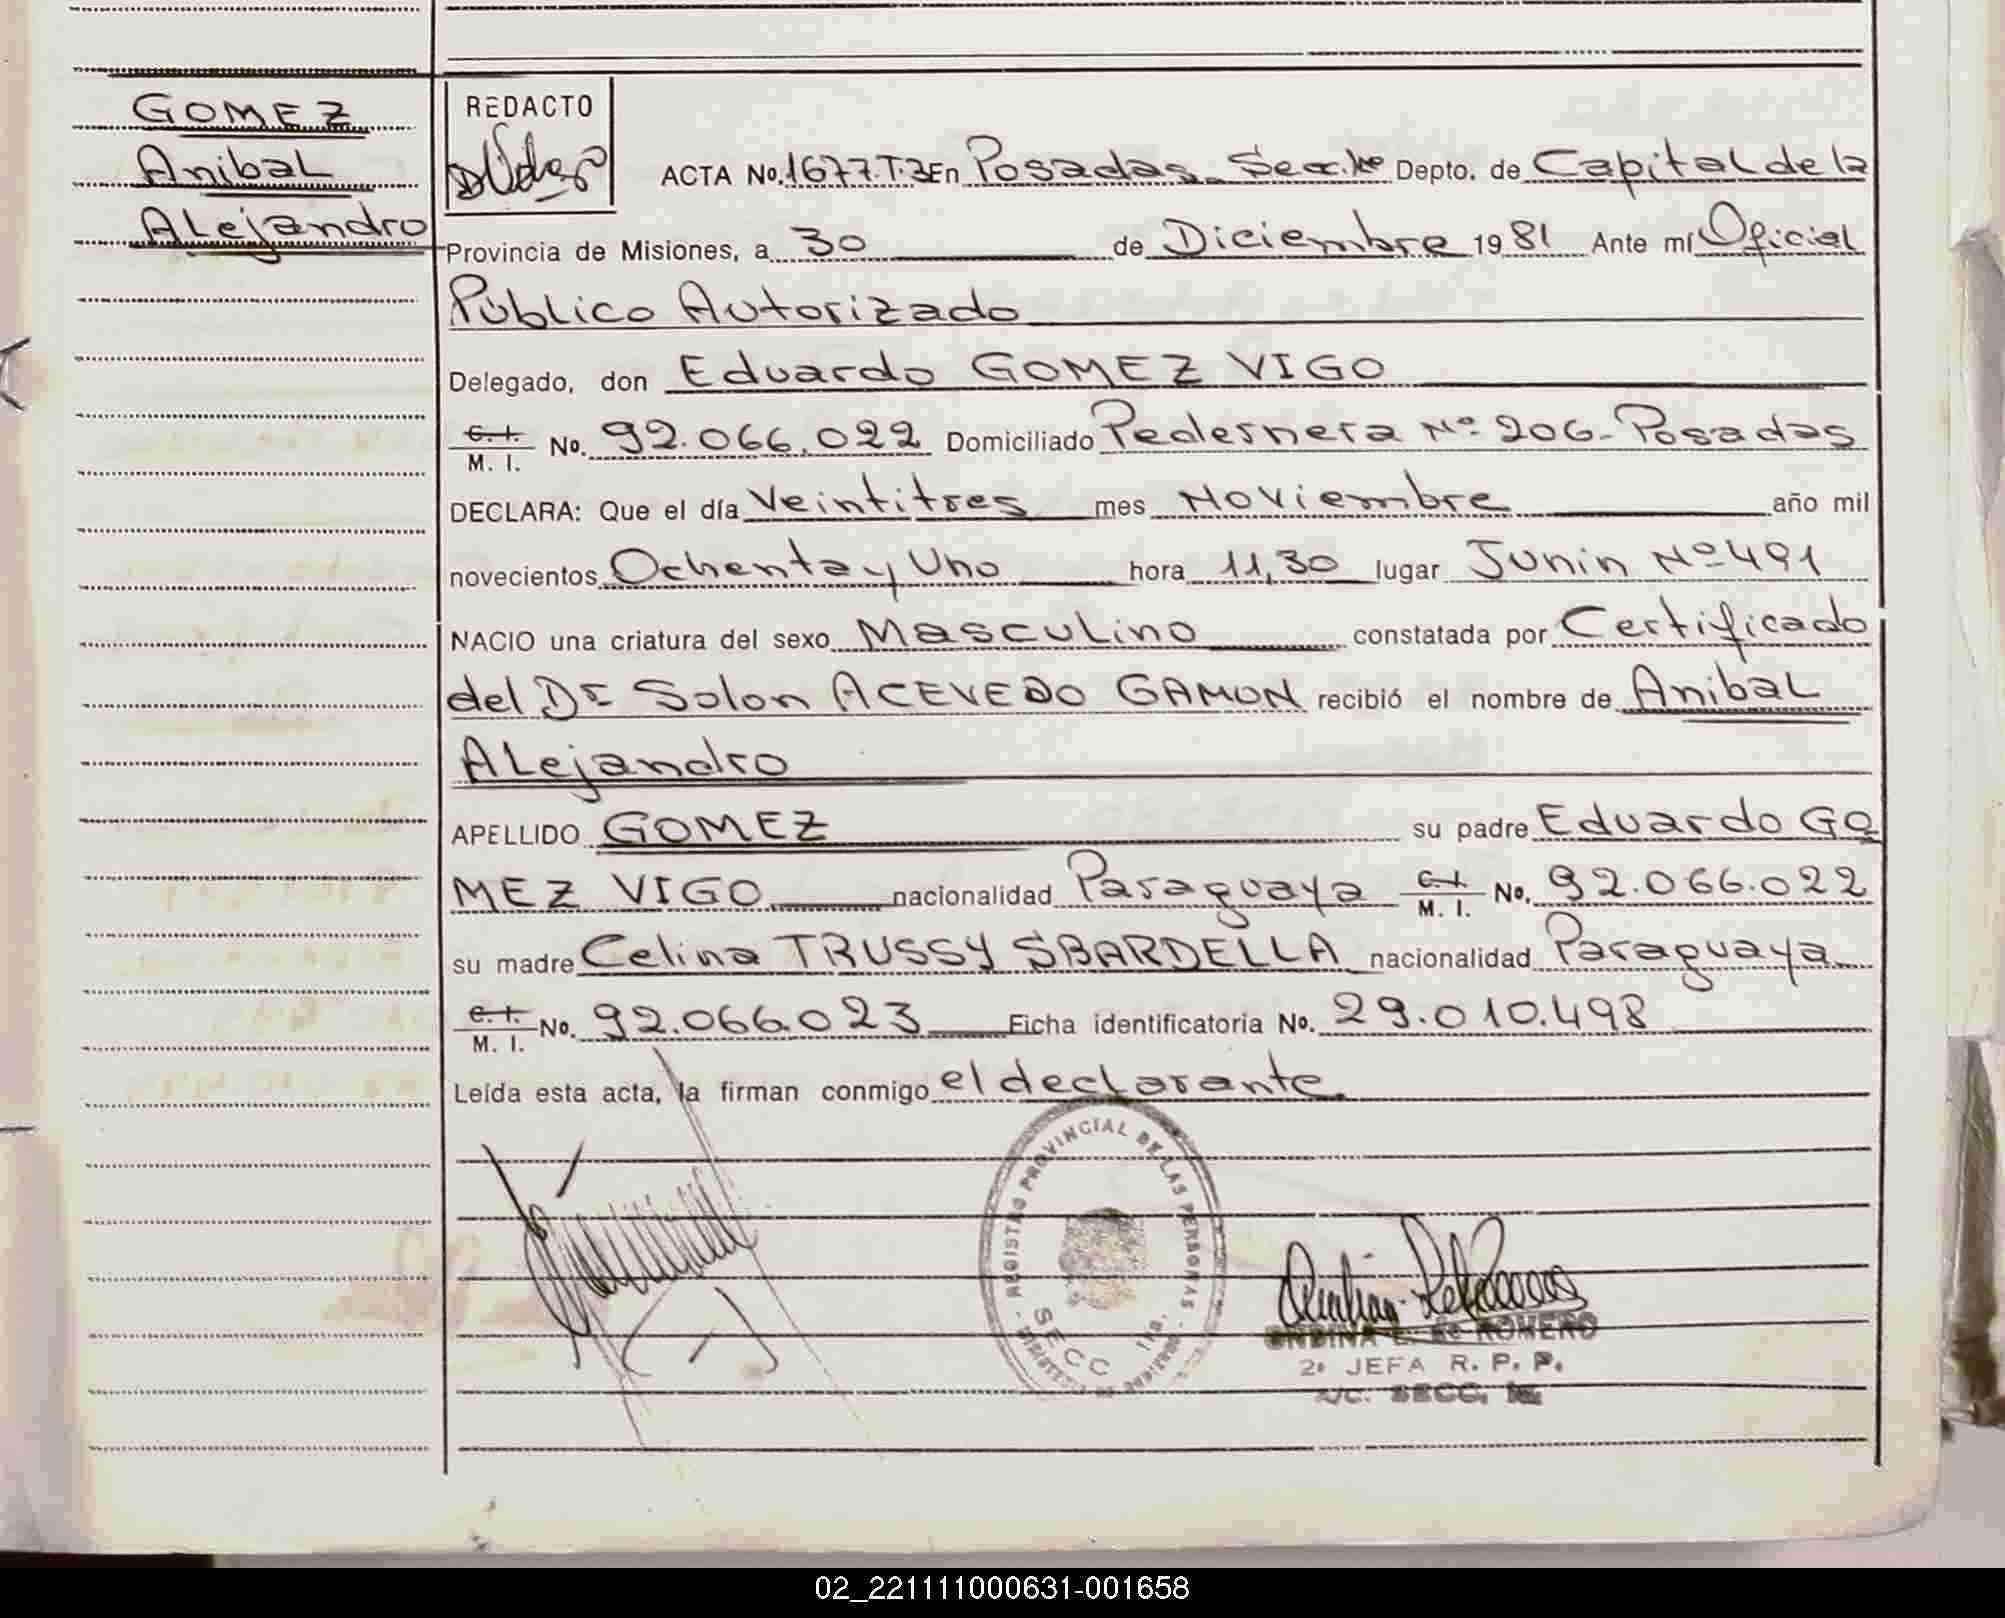 GOMEZ
Anibal
Alejandro
REDACTO
ACTA No. 1677.T.3 En Posadas Secc. 1ra Depto. de Capital de la
Provincia de Misiones, a 30 de Diciembre 1981 Ante mí Oficial
Público Autorizado
Delegado, don Eduardo GOMEZ VIGO
C. I.
M. I. No. 92.066.022 Domiciliado Pedernera Nº 206- Posadas
DECLARA: Que el día Veintitres mes Noviembre año mil
novecientos Ochenta y Uno hora 11,30 lugar Junin Nº 491
NACIO una criatura del sexo Masculino constatada por Certificado
del Dr Solon ACEVEDO GAMON recibió el nombre de Anibal
Alejandro
APELLIDO GOMEZ su padre Eduardo GO
MEZ VIGO nacionalidad Paraguaya C. I.
M. I. No. 92.066.022
su madre Celina TRUSSY SBARDELLA nacionalidad Paraguaya
C. I.
M. I. No. 92.066.023 Ficha identificatoria No. 29.010.498
Leída esta acta, la firman conmigo el declarante.
REGISTRO PROVINCIAL DE LAS PERSONAS
SECC 1ra.
ONDINA L. de ROMERO
2ª JEFA R. P. P.
A/C. SECC. 1a.
02_221111000631-001658